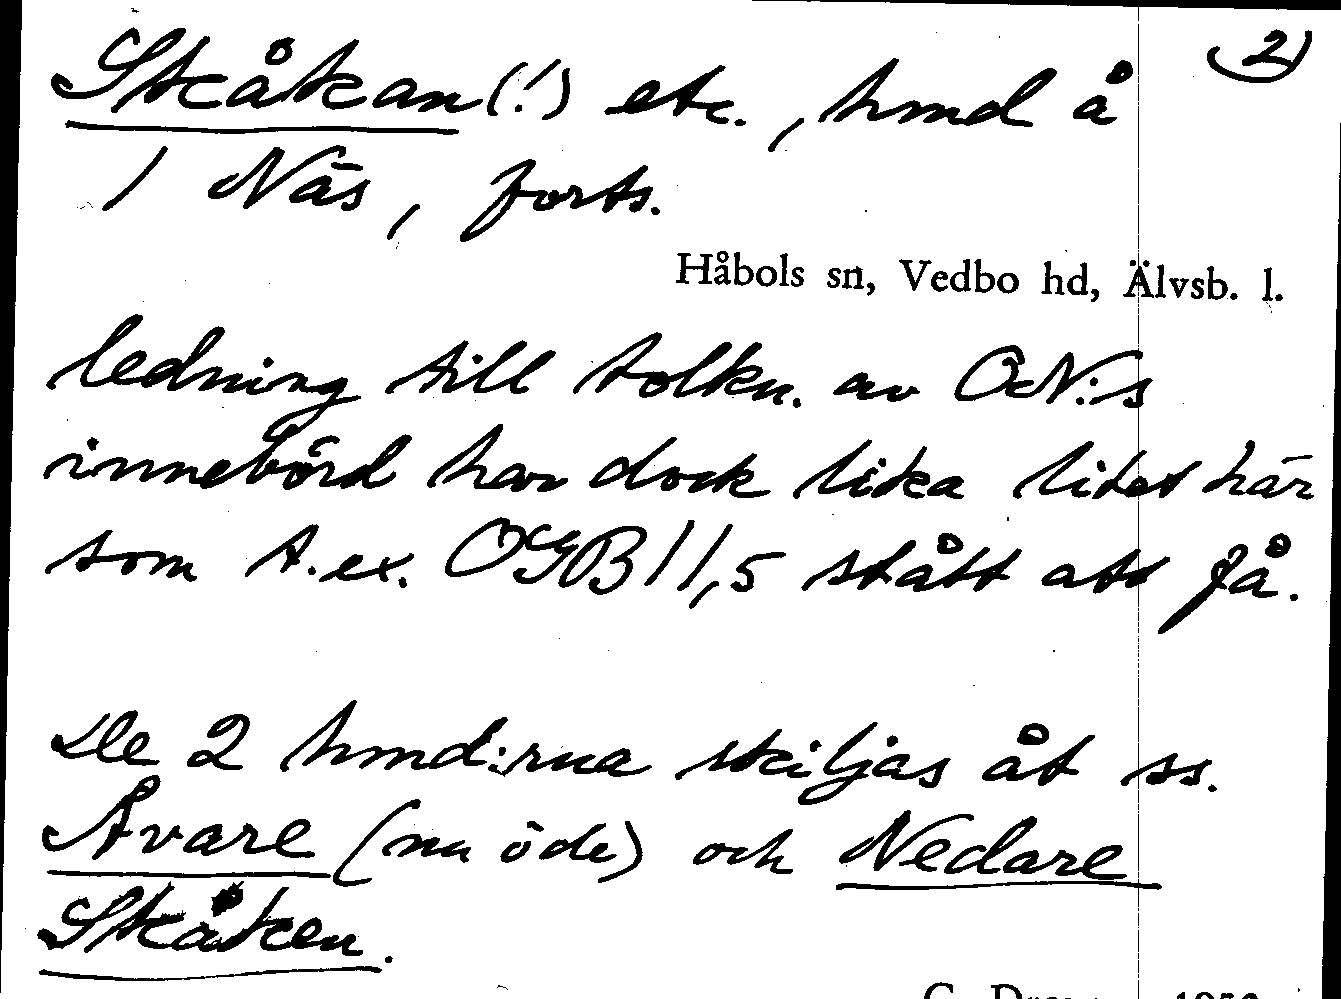 2)
Skåkan(!) etc., hmd å
1 Näs, forts.
Håbols sn, Vedbo hd, Älvsb. l.
ledning till tolkn. av ON:s
innebörd har dock lika litet här
som t.ex. OGB 11,5 stått att få.
De 2 hmd:rna skiljas åt ss.
Åvare (nu öde) och Nedare
Skåken.